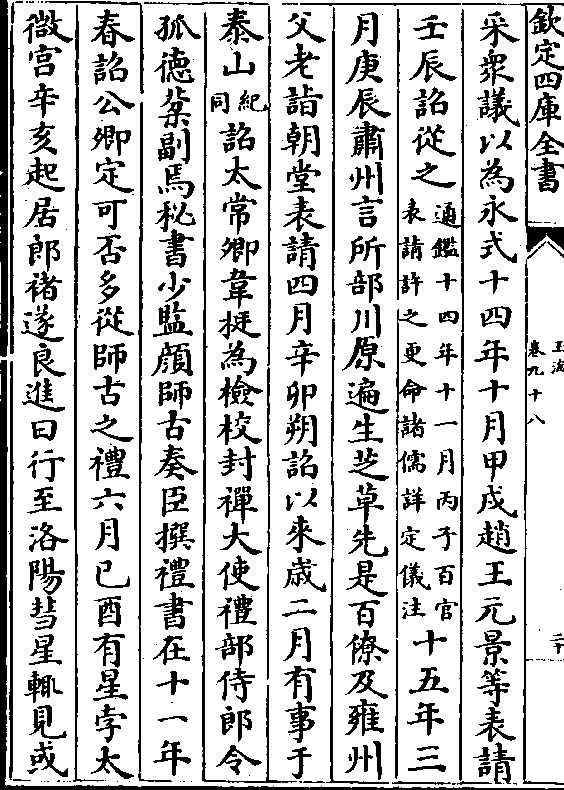 欽定四庫全書
玉海
卷九十八
二十
采衆議以為永式十四年十月甲戌趙王元景等表請
壬辰詔從之通鑑十四年十一月丙子百官
表請許之更命諸儒詳定儀注十五年三
月庚辰肅州言所部川原遍生芝草先是百僚及雍州
父老詣朝堂表請四月辛卯朔詔以來歲二月有事于
泰山紀
同詔太常卿韋挺為檢校封禪大使禮部侍郎令
狐德棻副焉秘書少監顔師古奏臣撰禮書在十一年
春詔公卿定可否多從師古之禮六月已酉有星孛太
微宫辛亥起居郎褚遂良進曰行至洛陽彗星輒見或